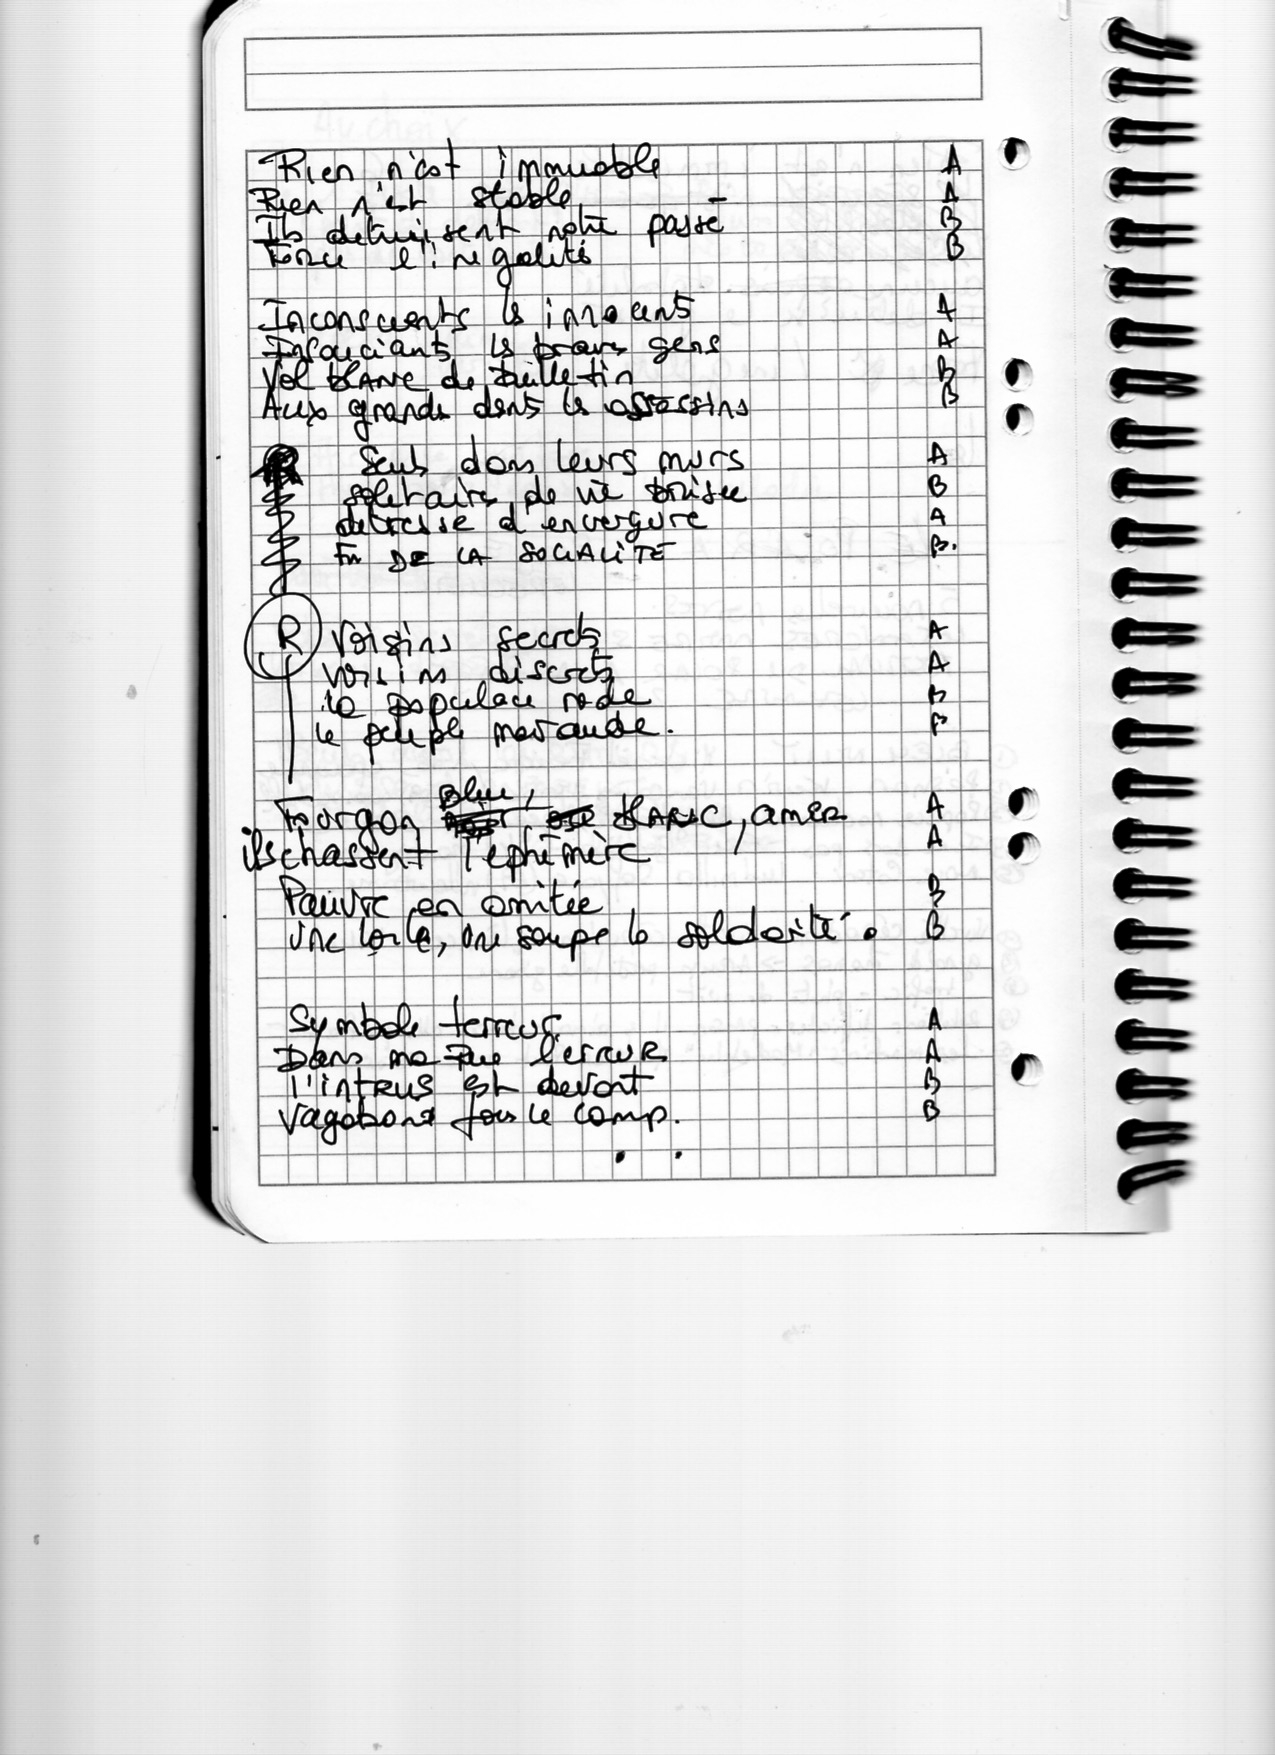 Rien n'est immuable A
Rien n'est stable A
Ils detruisent notre passé B
Force l'inégalité B
Inconscients les innocents A
Insouciants les braves gens A
Vol BLANC de bulletin B
Aux grands dents les assassins B
Seuls dans leurs murs A
solitaires de vie brisée B
detresse d'envergure A
Fin DE LA SOCIALITÉ B.
R Voisins secrets A
voisins discrets A
la populace rode B
le peuple maraude. B
Bleu,
Fourgon BLANC, amER A
ils chassent l'ephémère A
Pauvre en amitiée B
une toile, une soupe la solidarité. B
Symbole terreur A
Dans ma Rue l'erreuR A
l'intRus est devant B
Vagabond fous le camp. B